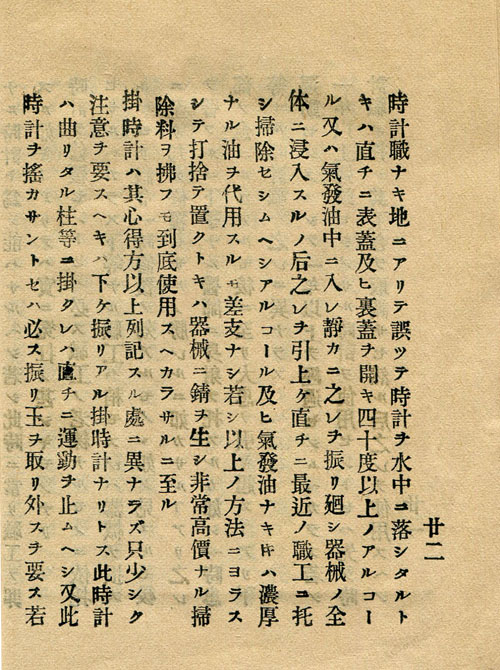 廿二
時計職ナキ地ニアリテ誤ツテ時計ヲ水中ニ落シタルト
キハ直チニ表蓋及ヒ裏蓋ヲ開キ四十度以上ノアルコー
ル又ハ氣發油中ニ入レ靜カニ之レヲ振リ廻シ器械ノ全
体ニ浸入スルノ后之レヲ引上ケ直チニ最近ノ職工ニ托
シ掃除セシムヘシアルコール及ヒ氣發油ナキ𪜈ハ濃厚
ナル油ヲ代用スルモ差支ナシ若シ以上ノ方法ニヨラス
シテ打捨テ置クトキハ器械ニ錆ヲ生シ非常高價ナル掃
除料ヲ拂フモ到底使用スヘカラサルニ至ル
掛時計ハ其心得方以上列記スル處ニ異ナラズ只少シク
注意ヲ要スヘキハ下ケ振リアル掛時計ナリトス此時計
ハ曲リタル柱等ニ掛クレハ直チニ運動ヲ止ムヘシ又此
時計ヲ搖カサントセハ必ス振リ玉ヲ取リ外スヲ要ス若